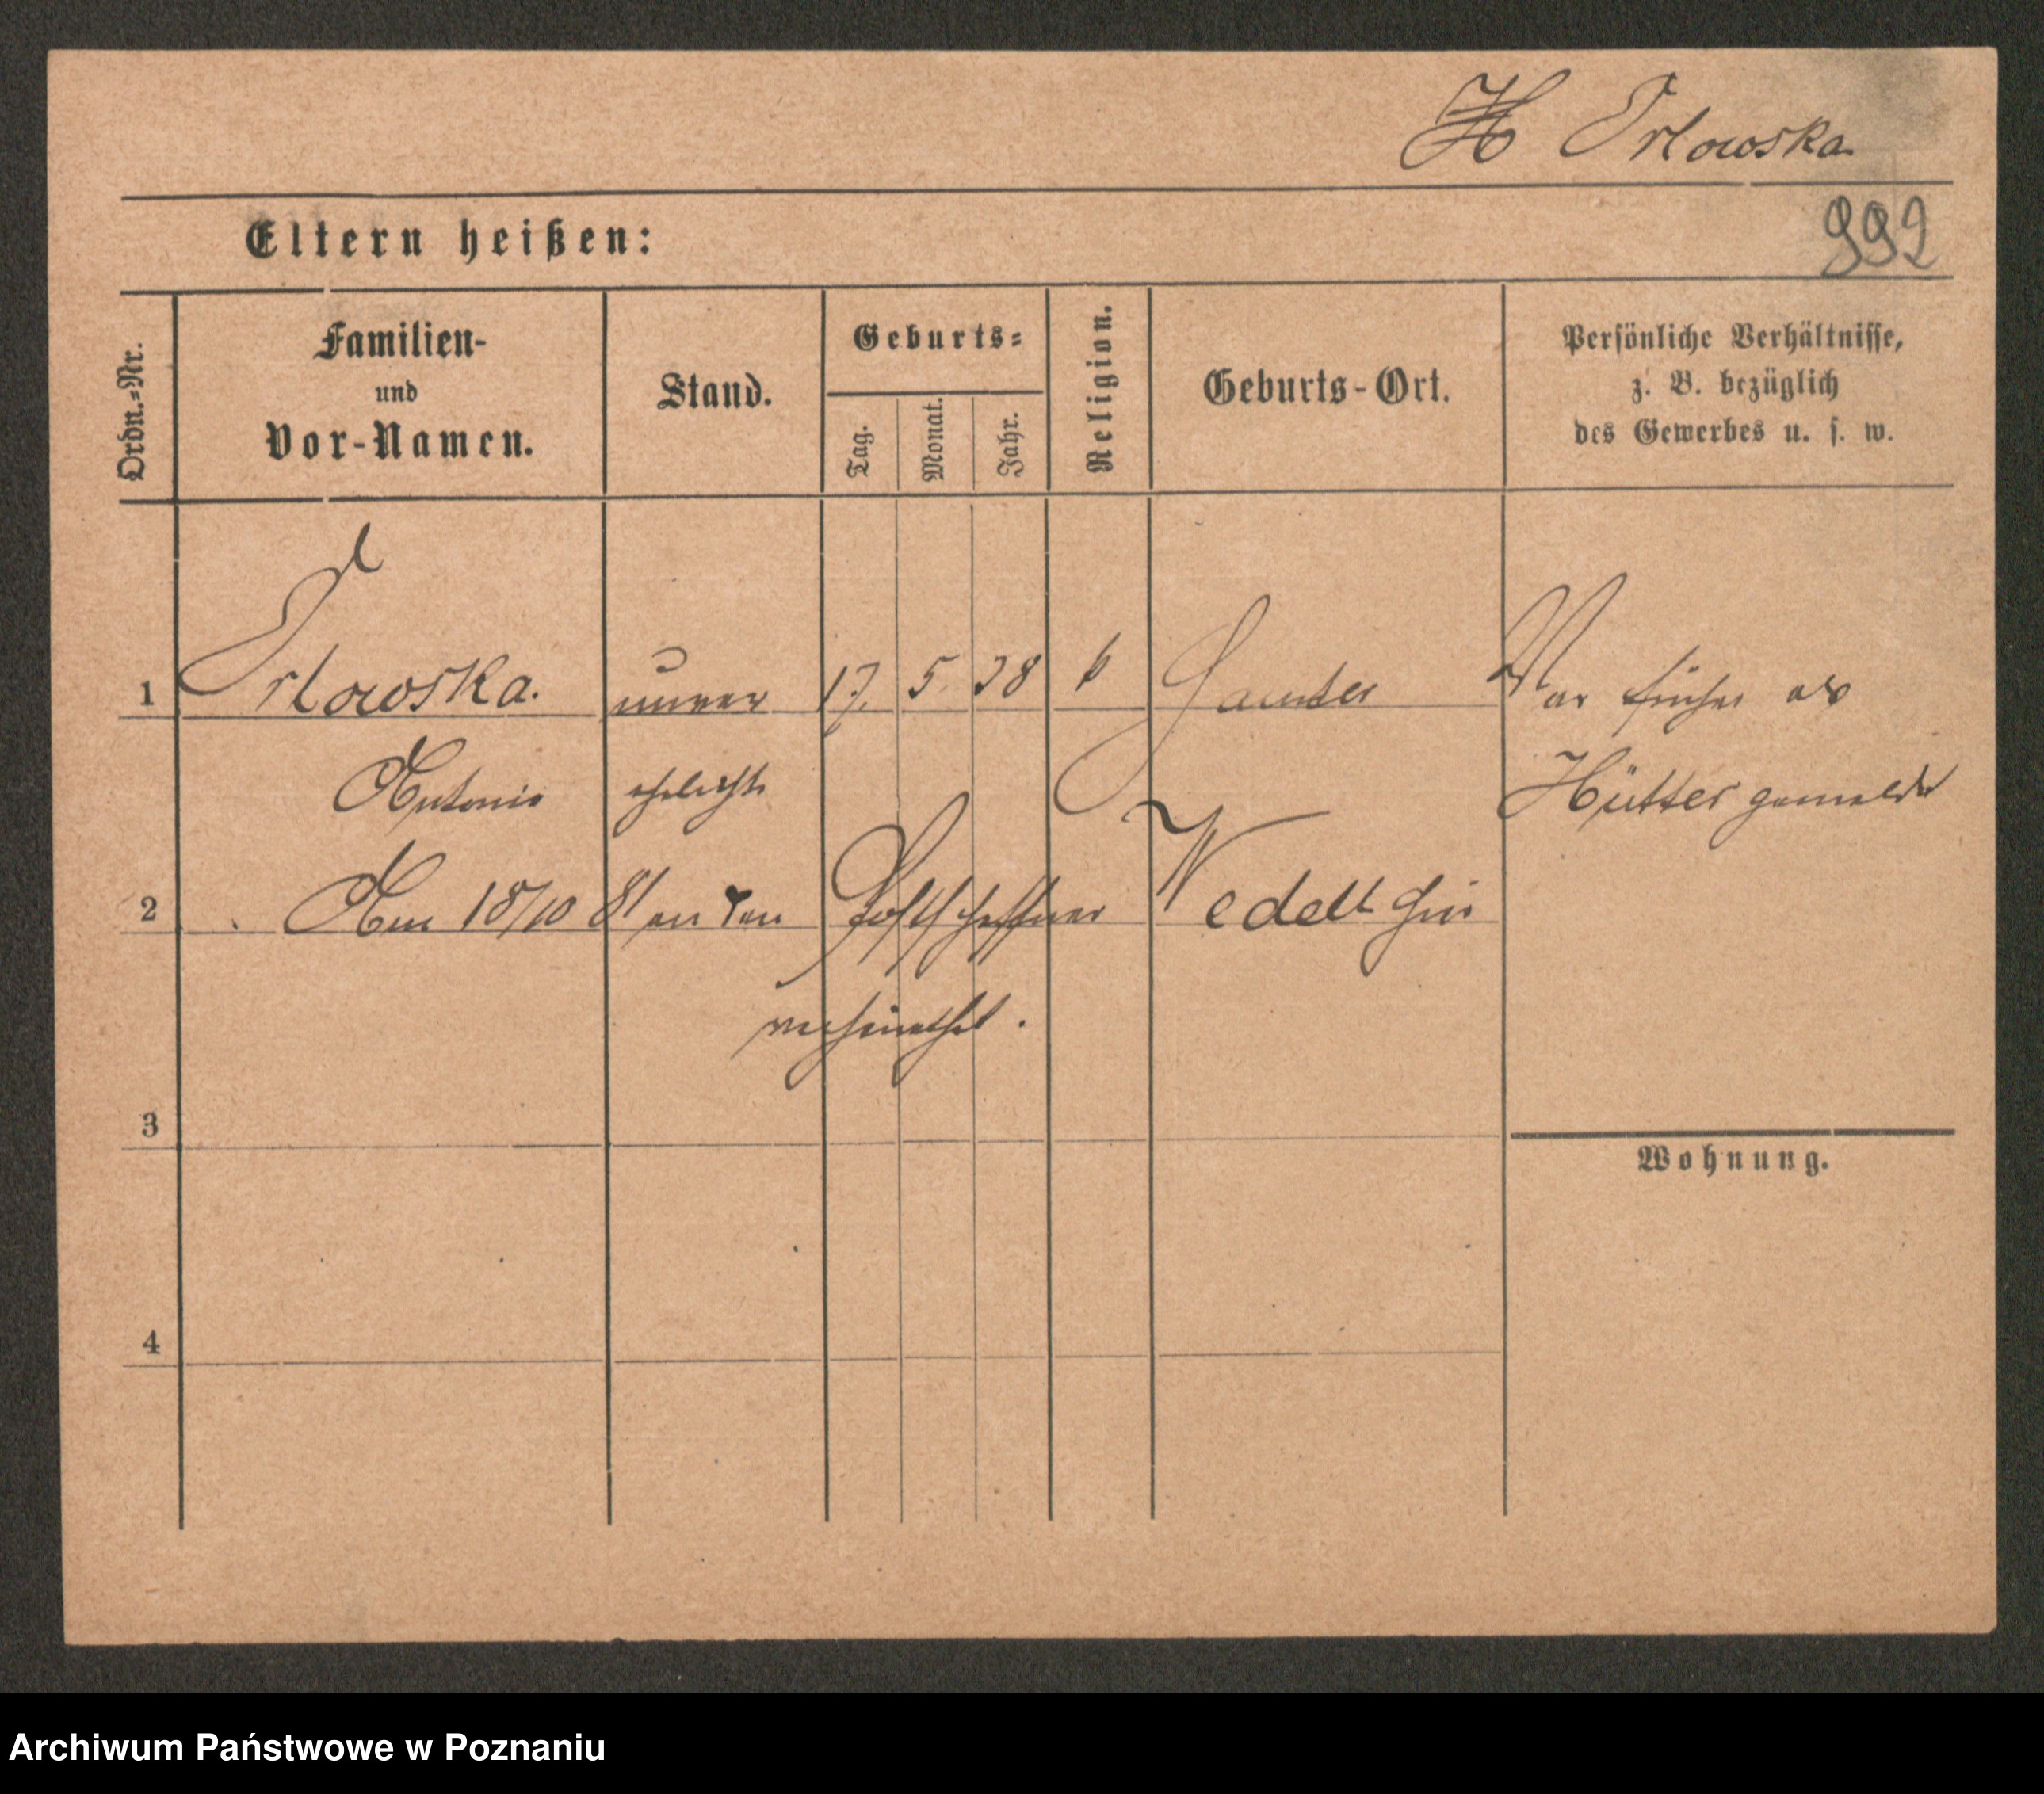 H Orlowska
Eltern heißen:
992
Ordn.-Nr.
Familien-
und
Vor-Namen.
Stand.
Geburts-
Tag.
Monat.
Jahr.
Religion.
Geburts-Ort.
Persönliche Verhältnisse,
z. B. bezüglich
des Gewerbes u. s. w.
1 Orlowska. unver 17. 5. 38 k Samter War früher als
Antonie ehelicht Hütter gemeldet
2 Am 18/10 81 an den Postschaffner Wedell hier
verheirathet.
3
Wohnung.
4
Archiwum Państwowe w Poznaniu